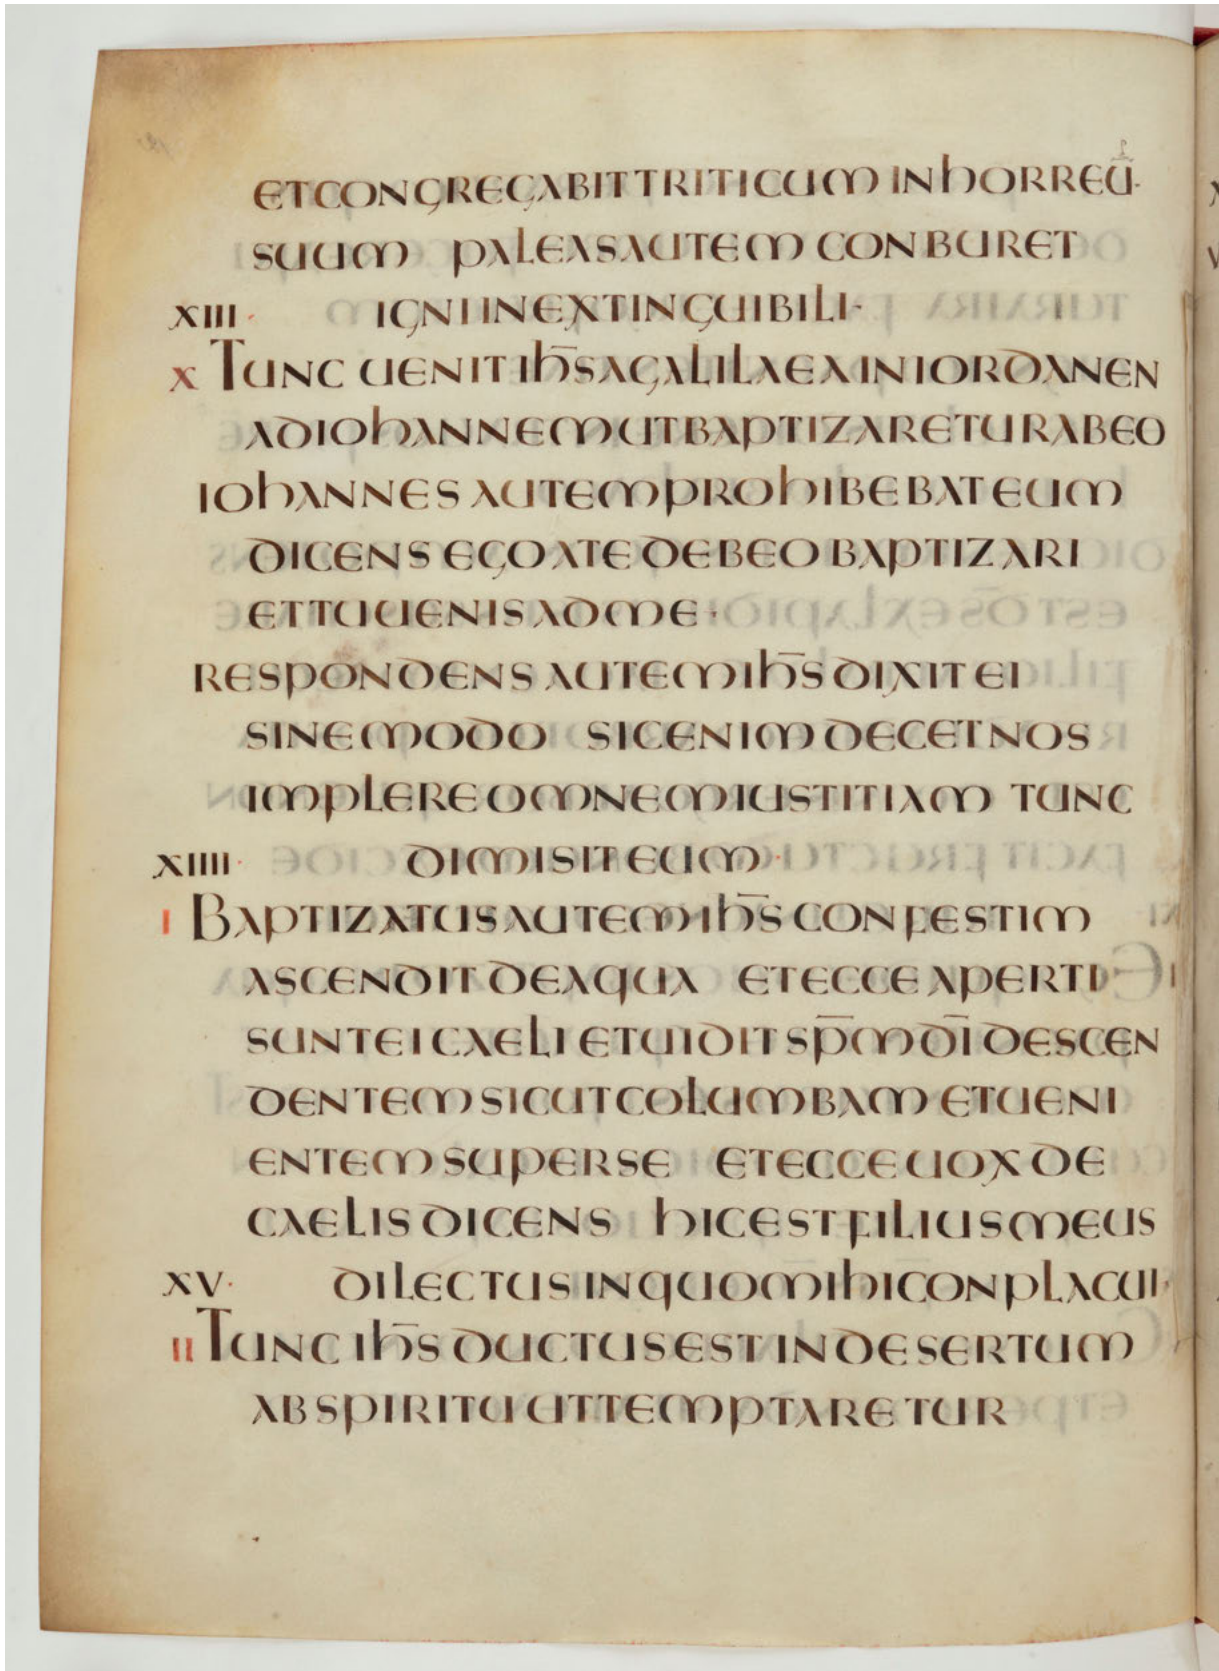 ETCONGREGABITTRITICUM INHORREŪ·
SUUM PALEASAUTEM CONBURET
XIII· IGNI INEXTINGUIBILI·
X TUNC UENIT IH̄S AGALILAEA IN IORDANEN
AD IOHANNEM UT BAPTIZARETUR AB EO
IOHANNES AUTEM PROHIBEBAT EUM
DICENS EGO A TE DEBEO BAPTIZARI
ET TU UENIS AD ME·
RESPONDENS AUTEM IH̄S DIXIT EI
SINE MODO SIC ENIM DECET NOS
IMPLERE OMNEM IUSTITIAM TUNC
XIIII· DIMISIT EUM·
I BAPTIZATUS AUTEM IH̄S CONFESTIM
ASCENDIT DE AQUA ET ECCE APERTI
SUNT EI CAELI ET UIDIT SP̄M DĪ DESCEN
DENTEM SICUT COLUMBAM ET UENI
ENTEM SUPER SE ET ECCE UOX DE
CAELIS DICENS HIC EST FILIUS MEUS
XV· DILECTUS IN QUO MIHI CONPLACUI·
II TUNC IH̄S DUCTUS EST IN DESERTUM
AB SPIRITU UT TEMPTARETUR